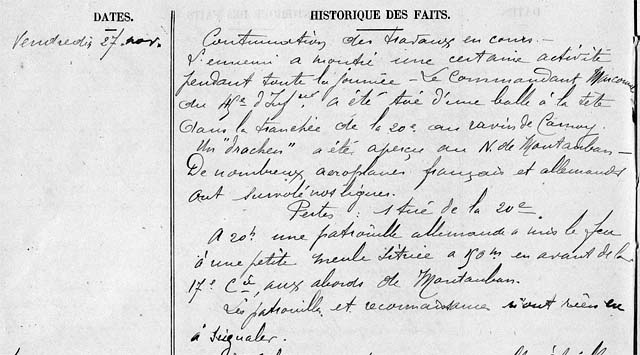 DATES.
HISTORIQUE DES FAITS.
Vendredi 27 nov.
Continuation des travaux en cours. —
L'ennemi a montré une certaine activité
pendant toute la journée — Le Commandant
du 45e d'Infie a été tué d'une balle à la tête
dans la tranchée de la 20e au ravin de Carnoy.
Un "drachen" a été aperçu au N. de Montauban —
De nombreux aéroplanes français et allemands
ont survolé nos lignes.
Pertes : 1 tué de la 20e
A 20h une patrouille allemande a mis le feu
à une petite meule située à 150m en avant de la
17e Cie aux abords de Montauban.
Les patrouilles et reconnaissances n'ont rien eu
à signaler.